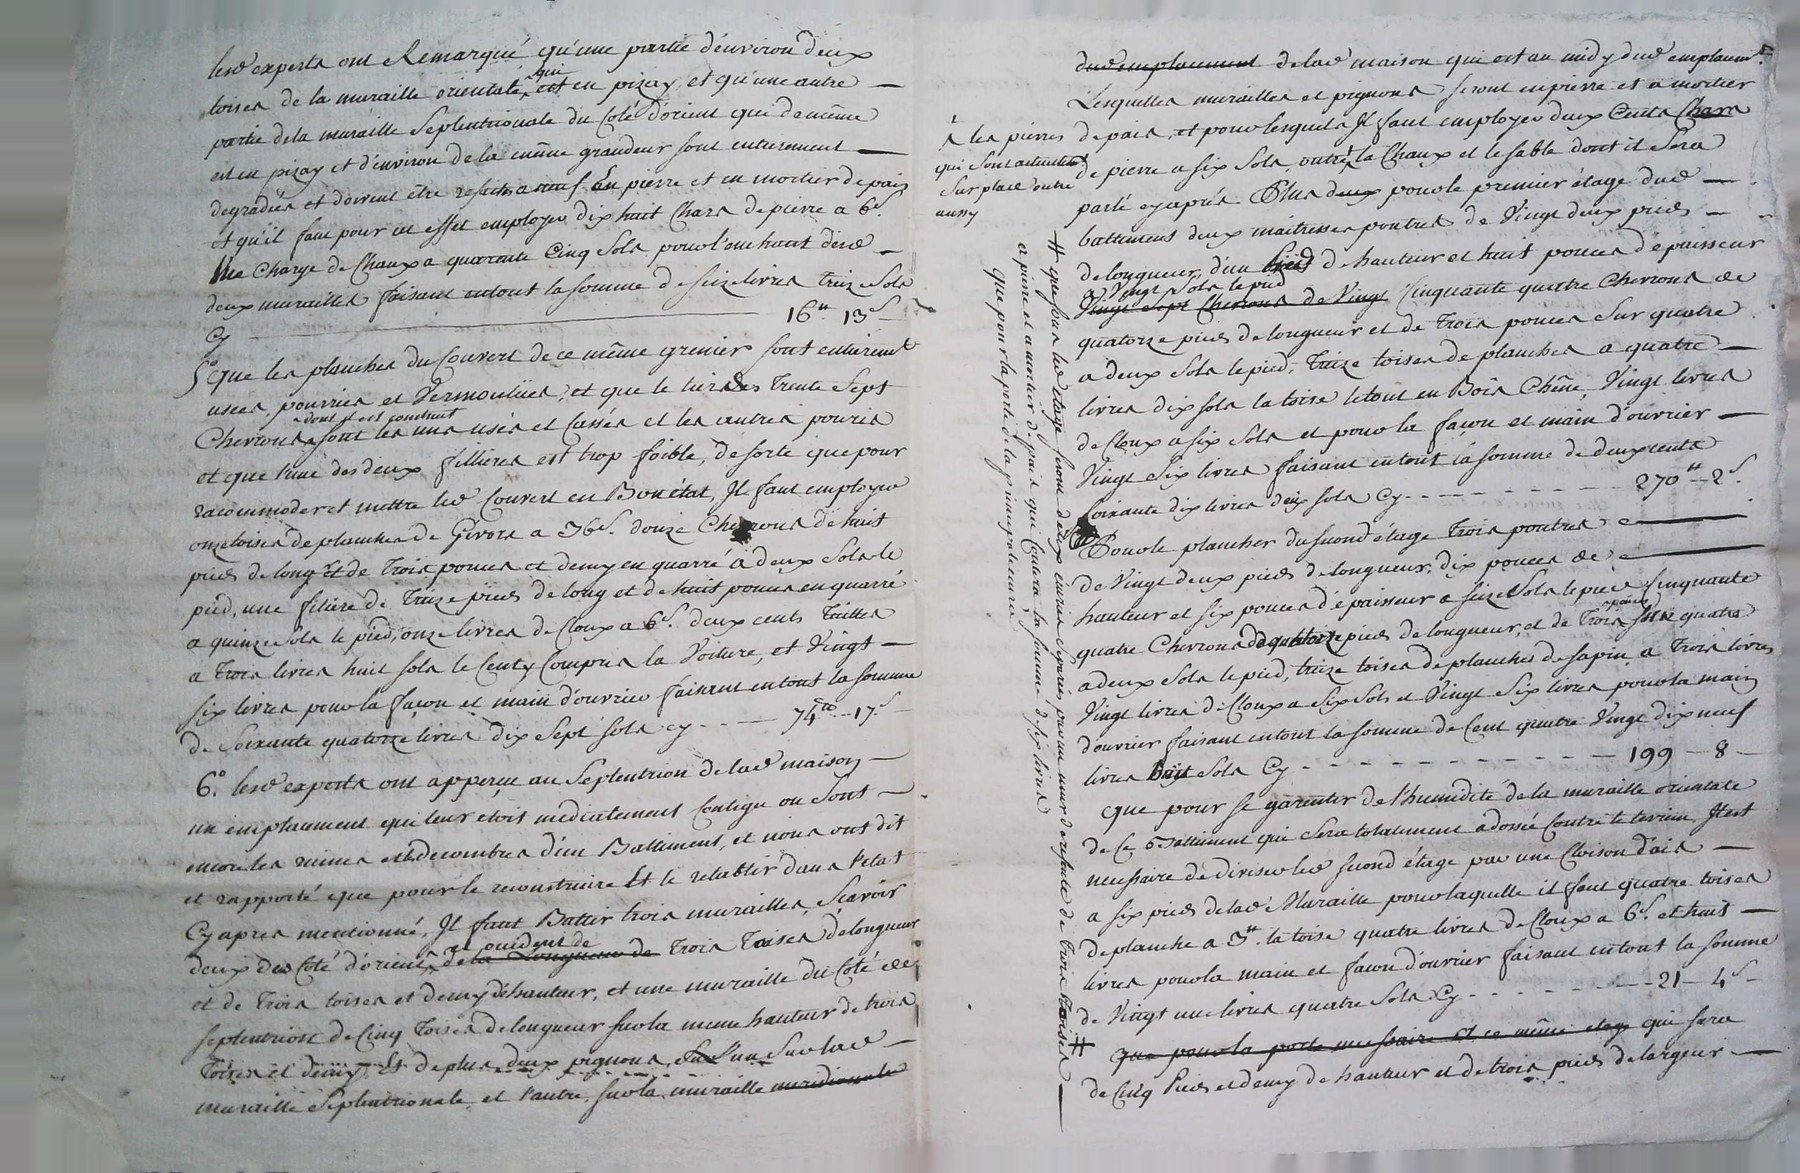 lesd experts ont Remarqué qu'une partie d'environ deux
toises de la muraille orientale, qui est en pizay, et qu'une autre
partie de la muraille Septentrionale du Coté d'orient que de même
est en pizay et d'environ de la même grandeur sont entierement
degradées et doivent être refaites a neuf En pierre et en mortier de pais
et qu'il faut pour cet effet employer dix huit Chars de pierre a 6s.
Une Charge de Chaux a quarante Cinq Sols pour l'enchaut desd
deux murailles faisant en tout la somme de seize livres treize Sols
Cy 16tt 13s
5° Que les planches du Couvert de ce même grenier sont entièremt
usées, pourries et Vermoulües, et que le tiers des Trente Sept
Chevrons dont il est construit sont les uns usés et Cassés et les autres pouris
et que l'une des deux fillieres est trop foible, de sorte que pour
racommoder et mettre led Couvert en Bon état, Il faut employer
onze toises de planches de Givors a 36s. douze Chevrons de huit
pieds de long et de Trois pouces et demy en quarré a deux Sols le
pied, une filiere de Treize pieds de long et de huit pouces en quarré
a quinze Sols le pied, onze livres de Cloux a 6s. deux cents Tuilles
a Trois livres huit sols le Cent y Compris la Voiture, et Vingt
six livres pour la façon et main d'ouvrier faisant en tout la somme
de Soixante quatorze livres dix Sept sols cy 74tt 17s
6° lesd experts ont apperçu au Septentrion de lad maison
un emplacement qui leur etoit mediatement Contigu ou Sont
encore les ruines et decombres d'un Battiment, et nous ont dit
et rapporté que pour le reconstruire Et le retablir dans l'etat
Cy apres mentionné, Il faut Battir trois murailles, Scavoir
deux du Coté d'orient et occident de de la Longueur de Trois Toises de longueur
et de Trois toises et demy de hauteur, et une muraille du Coté de
septentrion de Cinq Toises de longueur sur la meme hauteur de trois
Toises et demy, Et de plus deux pignons, l'un Sur lad
muraille Septentrionale, et l'autre sur la muraille meridionale
dud emplacement de lad maison qui est au midy dud emplacemt.
Lesquelles murailles et pignons seront en pierre et a mortier
de pais, et pour lesquels Il faut employer deux Cents Chars
de pierre a six Sols, outre la Chaux et le sable dont il Sera
parlé cy après Plus deux pour le premier étage dud
battiment deux maitresses poutres de Vingt deux pieds
de longueur, d'un pied de hauteur et huit pouces d'epaisseur
a Vingt Sols le pied
Vingt Sept Chevrons de Vingt Cinquante quatre Chevrons de
quatorze pieds de longueur et de Trois pouces Sur quatre
a deux Sols le pied, Treize toises de planches a quatre
livres dix sols la toise le tout en Bois Chêne, Vingt livres
de Cloux a six Sols et pour la façon et main d'ouvrier
Vingt Six livres faisant en tout la somme de deux cents
soixante dix livres deux sols Cy 270tt 2s.
Pour le plancher du second étage Trois poutres
de Vingt deux pieds de longueur, dix pouces de
hauteur et six pouces d'épaisseur a seize Sols le pied Cinquante
quatre Chevrons de quatorze pieds de longueur, et de Trois pouces Sur quatre
a deux Sols le pied, treize toises de planches de sapin a Trois livres
Vingt livres de Cloux a Six Sols et Vingt Six livres pour la main
d'ouvrier faisant en tout la somme de Cent quatre Vingt dix neuf
livres huit Sols Cy 199 8
Que pour se garentir de l'humidité de la muraille orientale
de ce Battiment qui Sera totalement adossé Contre le terrein, Il est
necessaire de diviser led second étage par une Cloison d'ais
a six pieds de lad Muraille pour laquelle il faut quatre toises
de planche a 3tt la toise quatre livres de Cloux a 6s. et huit
livres pour la main et façon d'ouvrier faisant en tout la somme
de Vingt une livres quatre Sols Cy 21 4s
que pour la porte necessaire et ce même etage qui sera
de Cinq Pieds et demy de hauteur et de trois pieds de largeur
A les pierres
qui sont actuellemt
Sur place outre
aussy
# que sous led etage seront deux ecuries separées par un mur de refente de Trois toises
et pierre et a mortier de pais que Coutera la somme de six livres
Que pour la porte de la principale ecurie